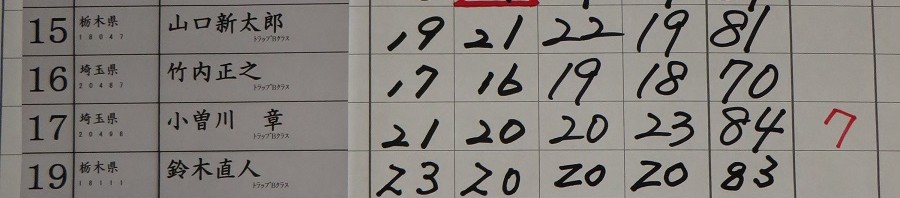 15 栃木県 山口新太郎 19 21 22 19 81
18047 トラップBクラス
16 埼玉県 竹内正之 17 16 19 18 70
20487 トラップBクラス
17 埼玉県 小曽川 章 21 20 20 23 84 7
20498 トラップBクラス
19 栃木県 鈴木直人 23 20 20 20 83
18111 トラップBクラス